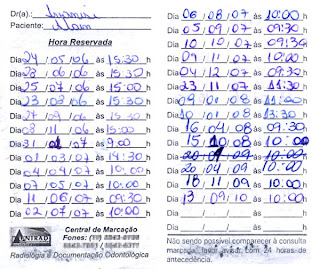 Dr(a).:
Paciente:
Hora Reservada
Dia 24/05/06 às 15:30 h
Dia 28/06/06 às 15:30 h
Dia 25/07/06 às 15:00 h
Dia 22/08/06 às 15:30 h
Dia 27/09/06 às 15:30 h
Dia 08/11/06 às 15:00 h
Dia 31/01/07 às 9:00 h
Dia 01/03/07 às 14:30 h
Dia 04/04/07 às 10:00 h
Dia 07/05/07 às 10:00 h
Dia 11/06/07 às 09:30 h
Dia 02/07/07 às 10:00 h
Central de Marcação
Fones:
Radiologia e Documentação Odontológica
Dia 06/08/07 às 10:00 h
Dia 05/09/07 às 09:30 h
Dia 10/10/07 às 09:30 h
Dia 09/11/07 às 10:00 h
Dia 04/12/07 às 09:30 h
Dia 23/11/07 às 11:30 h
Dia 09/01/08 às 11:00 h
Dia 10/01/08 às 13:30 h
Dia 16/04/08 às 09:30 h
Dia 15/10/08 às 10:00 h
Dia 20/04/09 às 10:00 h
Dia 20/04/09 às 10:00 h
Dia 18/11/09 às 10:00 h
Dia 13/09/10 às 10:00 h
Dia __/__/__ às __ h
Dia __/__/__ às __ h
Não sendo possível comparecer à consulta
marcada, favor avisar com 24 horas de
antecedência.